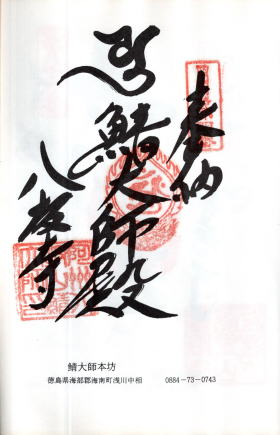 奉納
鯖大師殿
八坂寺
鯖大師本坊
徳島県海部郡海南町浅川中相 0884-73-0743